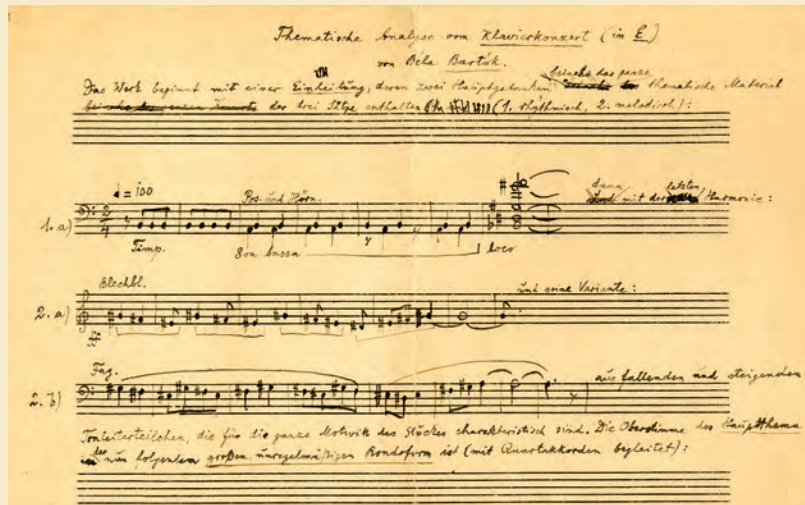 Thematische Analyse vom Klavierkonzert (in E)
von Béla Bartók.
beinahe das ganze
Das Werk beginnt mit einer Einleitung, deren zwei Hauptgedanken thematische Material
der drei Sätze enthalten (1. rhythmisch, 2. melodisch):
♩ = 100
Pos. und Hörn.
dann letzten
und mit der Harmonie:
1. a)
2/4
Timp.
8va bassa
loco
Blechbl.
und seine Variante:
2. a)
ff
Fag.
aus fallenden und steigenden
2. b)
Tonleiterteilchen, die für die ganze Motivik des Stückes charakteristisch sind. Die Oberstimme des Hauptthema
der nun folgenden großen, unregelmäßigen Rondoform ist (mit Quartakkorden begleitet):